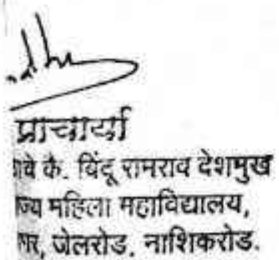 प्राचार्या
कै. विंदू रामराव देशमुख
महिला महाविद्यालय,
जेलरोड, नाशिकरोड.